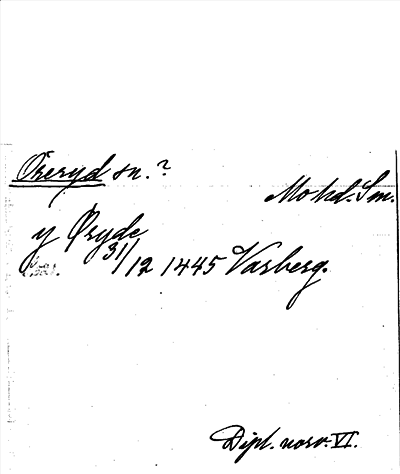 Öreryd sn.?
Mo hd. Sm.
y Øryde
31/12 1445 Varberg.
Dipl. norv. VI.